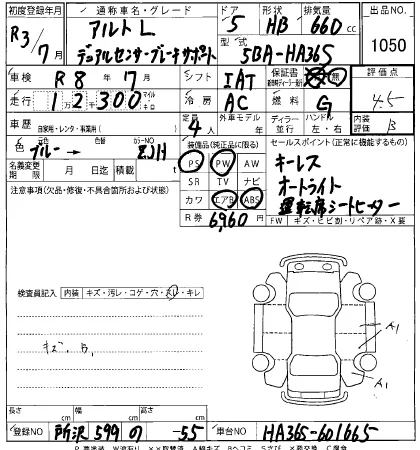 初度登録年月 通称車名・グレード ドア 形状 排気量 出品NO
R3/7月 アルト L 5 HB 660 cc 1050
デュアルセンサーブレーキサポート 型式 5BA-HA36S
車検 R8年7月 シフト IAT 保証書 無 評価点
走行 1万2千300 マイル キロ 冷房 AC 燃料 G 4.5
車歴 自家用・レンタ・事業用( ) 定員 4人 外車モデル年 ディーラー 並行 ハンドル 左・右 内装評価 B
色 元色 ブルー → 色 カラーNO ZJH 装備品(純正品に限る) セールスポイント(正常に機能するもの)
名義変更期限 月 日迄 積載 t PS PW AW キーレス
注意事項(欠品・修復・不具合箇所および状態) SR TV ナビ オートライト
カワ エアB ABS 運転席シートヒーター
R券 6,960円 FW キズ・ヒビ割・リペア跡・X要
検査員記入 内装 キズ・汚レ・コゲ・穴・スレ・キレ
キズ、B,
A1
A1
長さ cm 幅 cm 高さ cm
登録NO 所沢 599 の -55 車台NO HA36S-601665